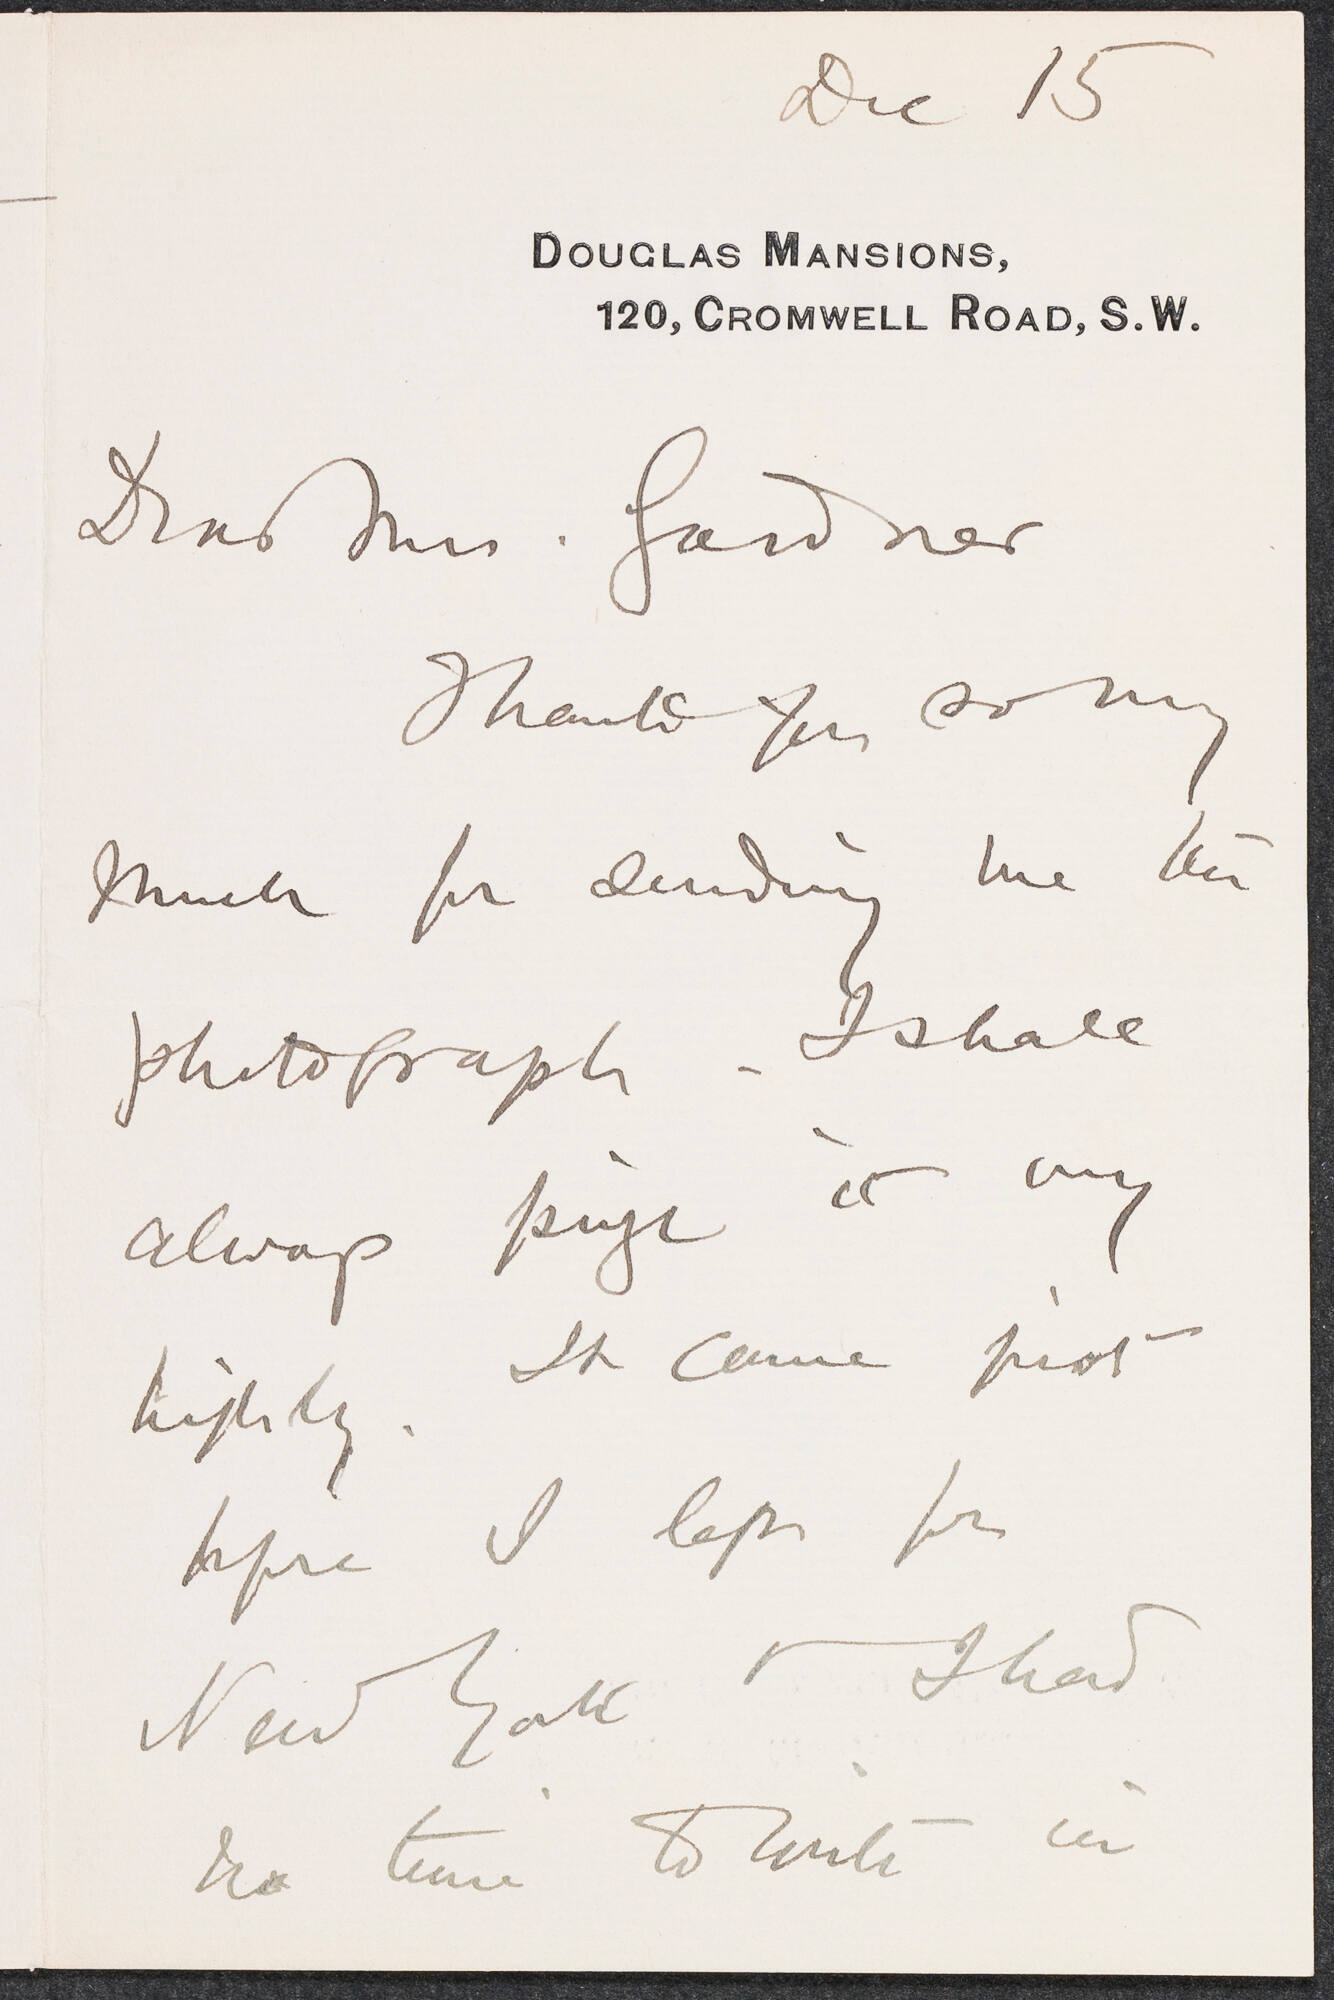 Dec 15
DOUGLAS MANSIONS,
120, CROMWELL ROAD, S.W.
Dear Mrs. Gardner
Thank you so very
much for sending me the
photograph - I shall
always prize it very
highly. It came just
before I left for
New York & I had
no time to write in